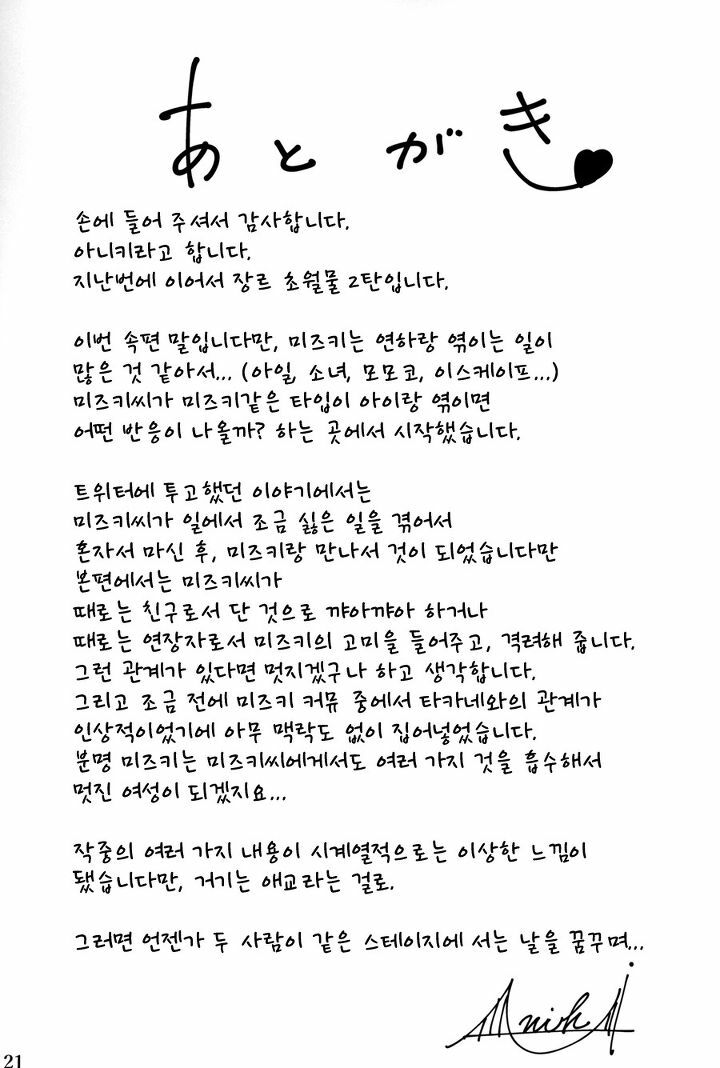 あとがき
손에 들어 주셔서 감사합니다.
아니키라고 합니다.
지난번에 이어서 장르 초월물 2탄입니다.
이번 속편 말입니다만, 미즈키는 연하랑 엮이는 일이
많은 것 같아서... (아일, 소녀, 모모코, 이스케이프...)
미즈키씨가 미즈키같은 타입이 아이랑 엮이면
어떤 반응이 나올까? 하는 곳에서 시작했습니다.
트위터에 투고했던 이야기에서는
미즈키씨가 일에서 조금 싫은 일을 겪어서
혼자서 마신 후, 미즈키랑 만나서 것이 되었습니다만
본편에서는 미즈키씨가
때로는 친구로서 단 것으로 꺄아꺄아 하거나
때로는 연장자로서 미즈키의 고미을 들어주고, 격려해 줍니다.
그런 관계가 있다면 멋지겠구나 하고 생각합니다.
그리고 조금 전에 미즈키 커뮤 중에서 타카네와의 관계가
인상적이었기에 아무 맥락도 없이 집어넣었습니다.
분명 미즈키는 미즈키씨에게서도 여러 가지 것을 흡수해서
멋진 여성이 되겠지요...
작중의 여러 가지 내용이 시계열적으로는 이상한 느낌이
됐습니다만, 거기는 애교라는 걸로.
그러면 언젠가 두 사람이 같은 스테이지에 서는 날을 꿈꾸며...
21